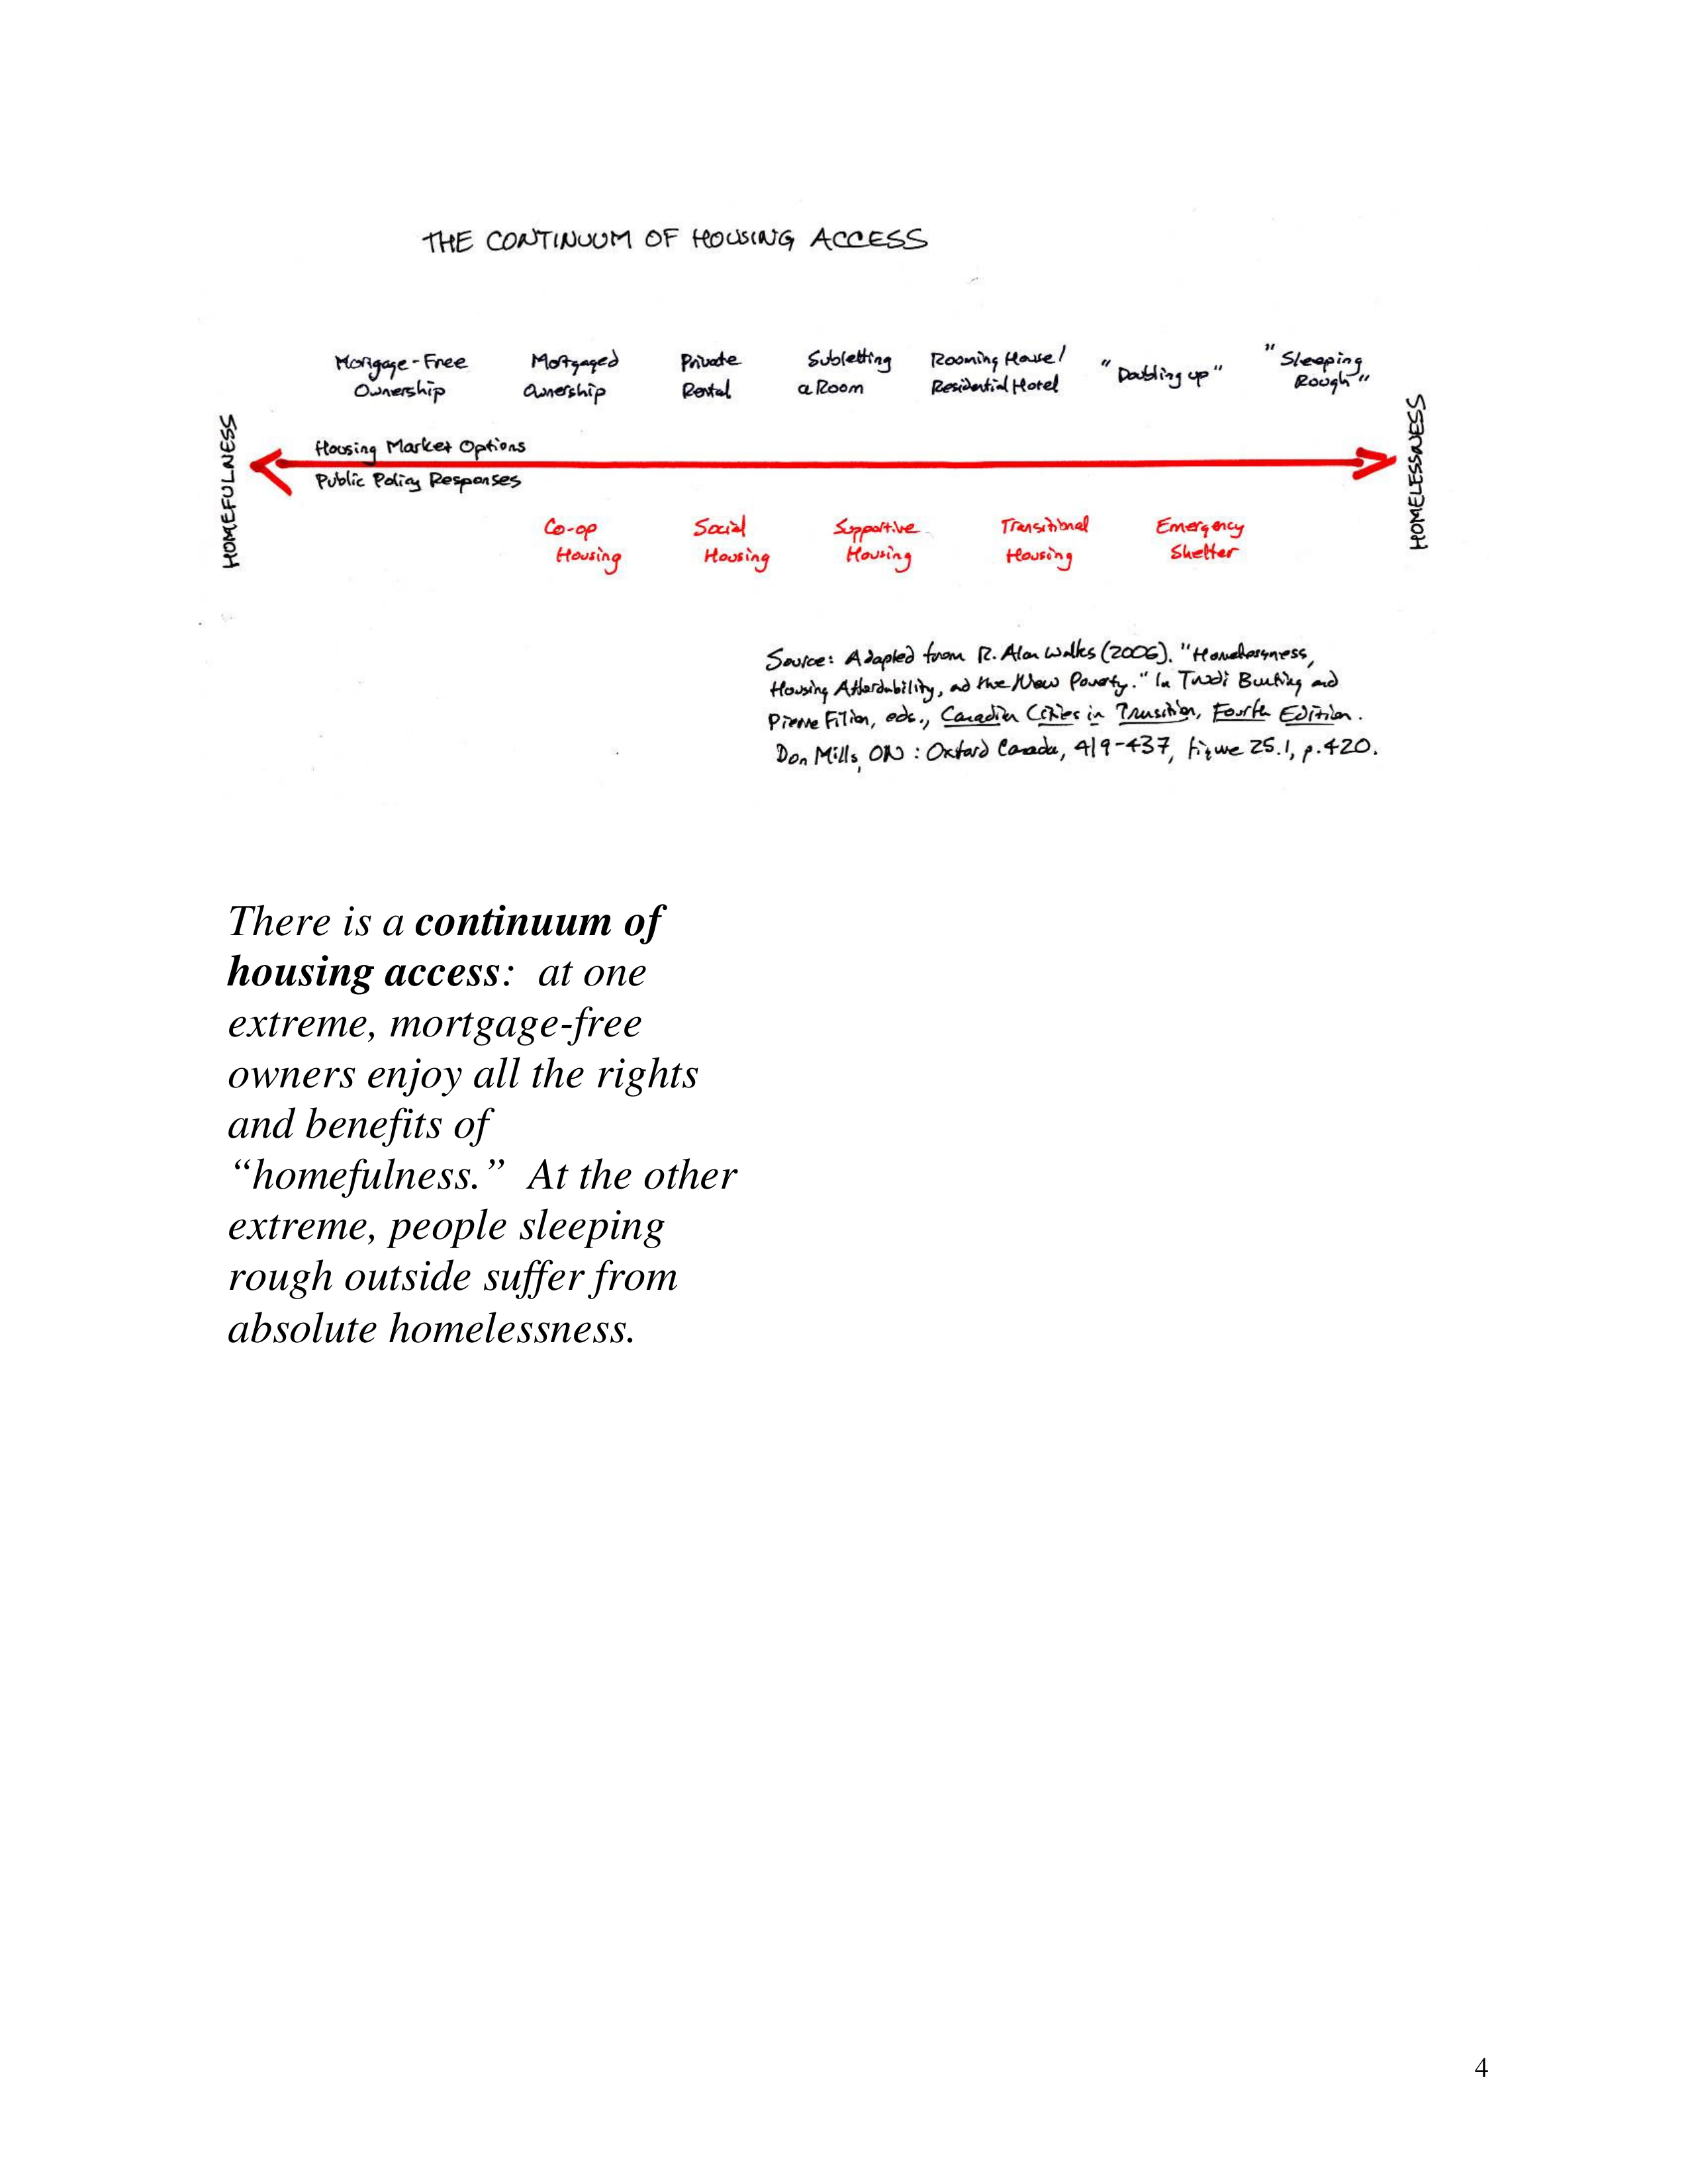 THE CONTINUUM OF HOUSING ACCESS
Mortgage-Free
Ownership
Mortgaged
Ownership
Private
Rental
Subletting
a Room
Rooming House/
Residential Hotel
"Doubling up"
"Sleeping
Rough"
HOMEFULNESS
Housing Market Options
Public Policy Responses
HOMELESSNESS
Co-op
Housing
Social
Housing
Supportive
Housing
Transitional
Housing
Emergency
Shelter
Source: Adapted from R. Alan Walks (2006). "Homelessness,
Housing Affordability, and the New Poverty." In Trudi Bunting and
Pierre Filion, eds., Canadian Cities in Transition, Fourth Edition.
Don Mills, ON: Oxford Canada, 419-437, figure 25.1, p.420.
There is a continuum of
housing access:  at one
extreme, mortgage-free
owners enjoy all the rights
and benefits of
“homefulness.”  At the other
extreme, people sleeping
rough outside suffer from
absolute homelessness.
4